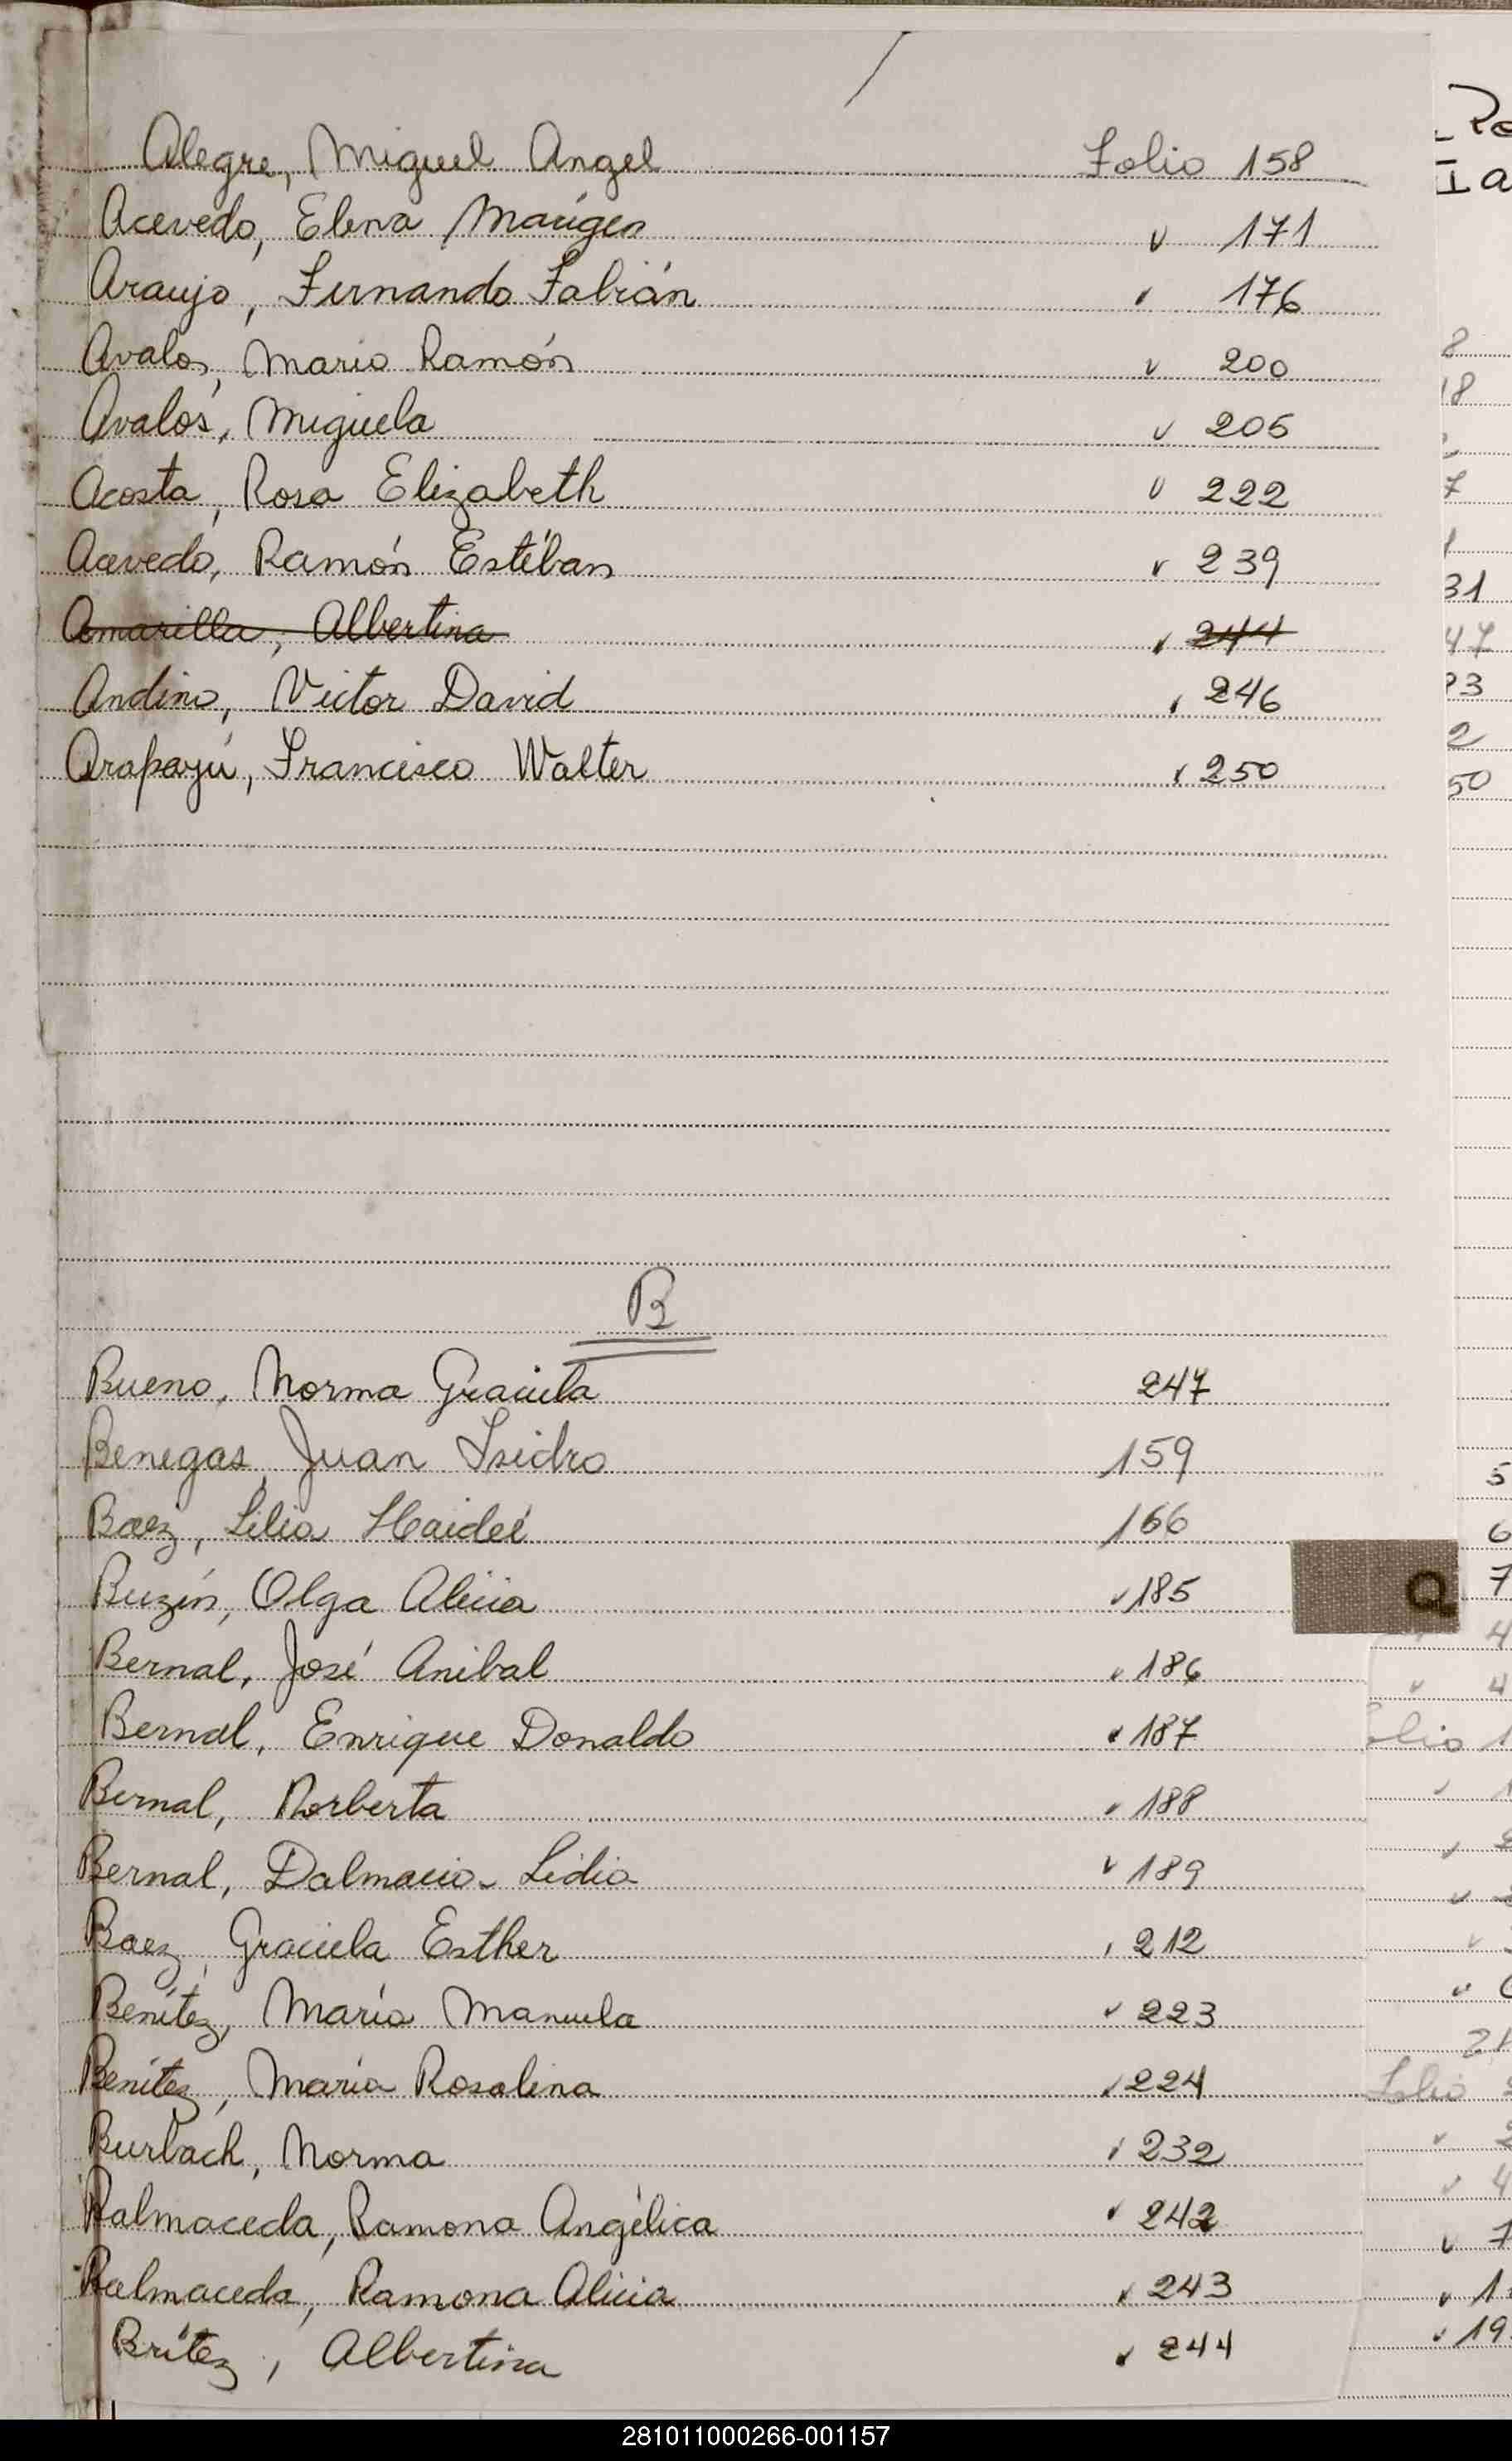 Alegre, Miguel Angel Folio 158
Acevedo, Elena 171
Araujo, Fernando Fabián 176
Avalos, Mario Ramón 200
Avalos, Miguela 205
Acosta, Rosa Elizabeth 222
Acevedo, Ramón Estéban 239
Amarilla, Albertina 244
Andino, Victor David 246
Arapayú, Francisco Walter 250
B
Bueno, Norma Graciela 247
Benegas, Juan Isidro 159
Baez, Lilia Haideé 166
Buzín, Olga Alicia 185
Bernal, José Anibal 186
Bernal, Enrique Donaldo 187
Bernal, Norberta 188
Bernal, Dalmacio Lidio 189
Baez, Graciela Esther 212
Benítez, María Manuela 223
Benítez, María Rosalina 224
Burbach, Norma 232
Balmaceda, Ramona Angélica 242
Balmaceda, Ramona Alicia 243
Brítez, Albertina 244
Q
281011000266-001157